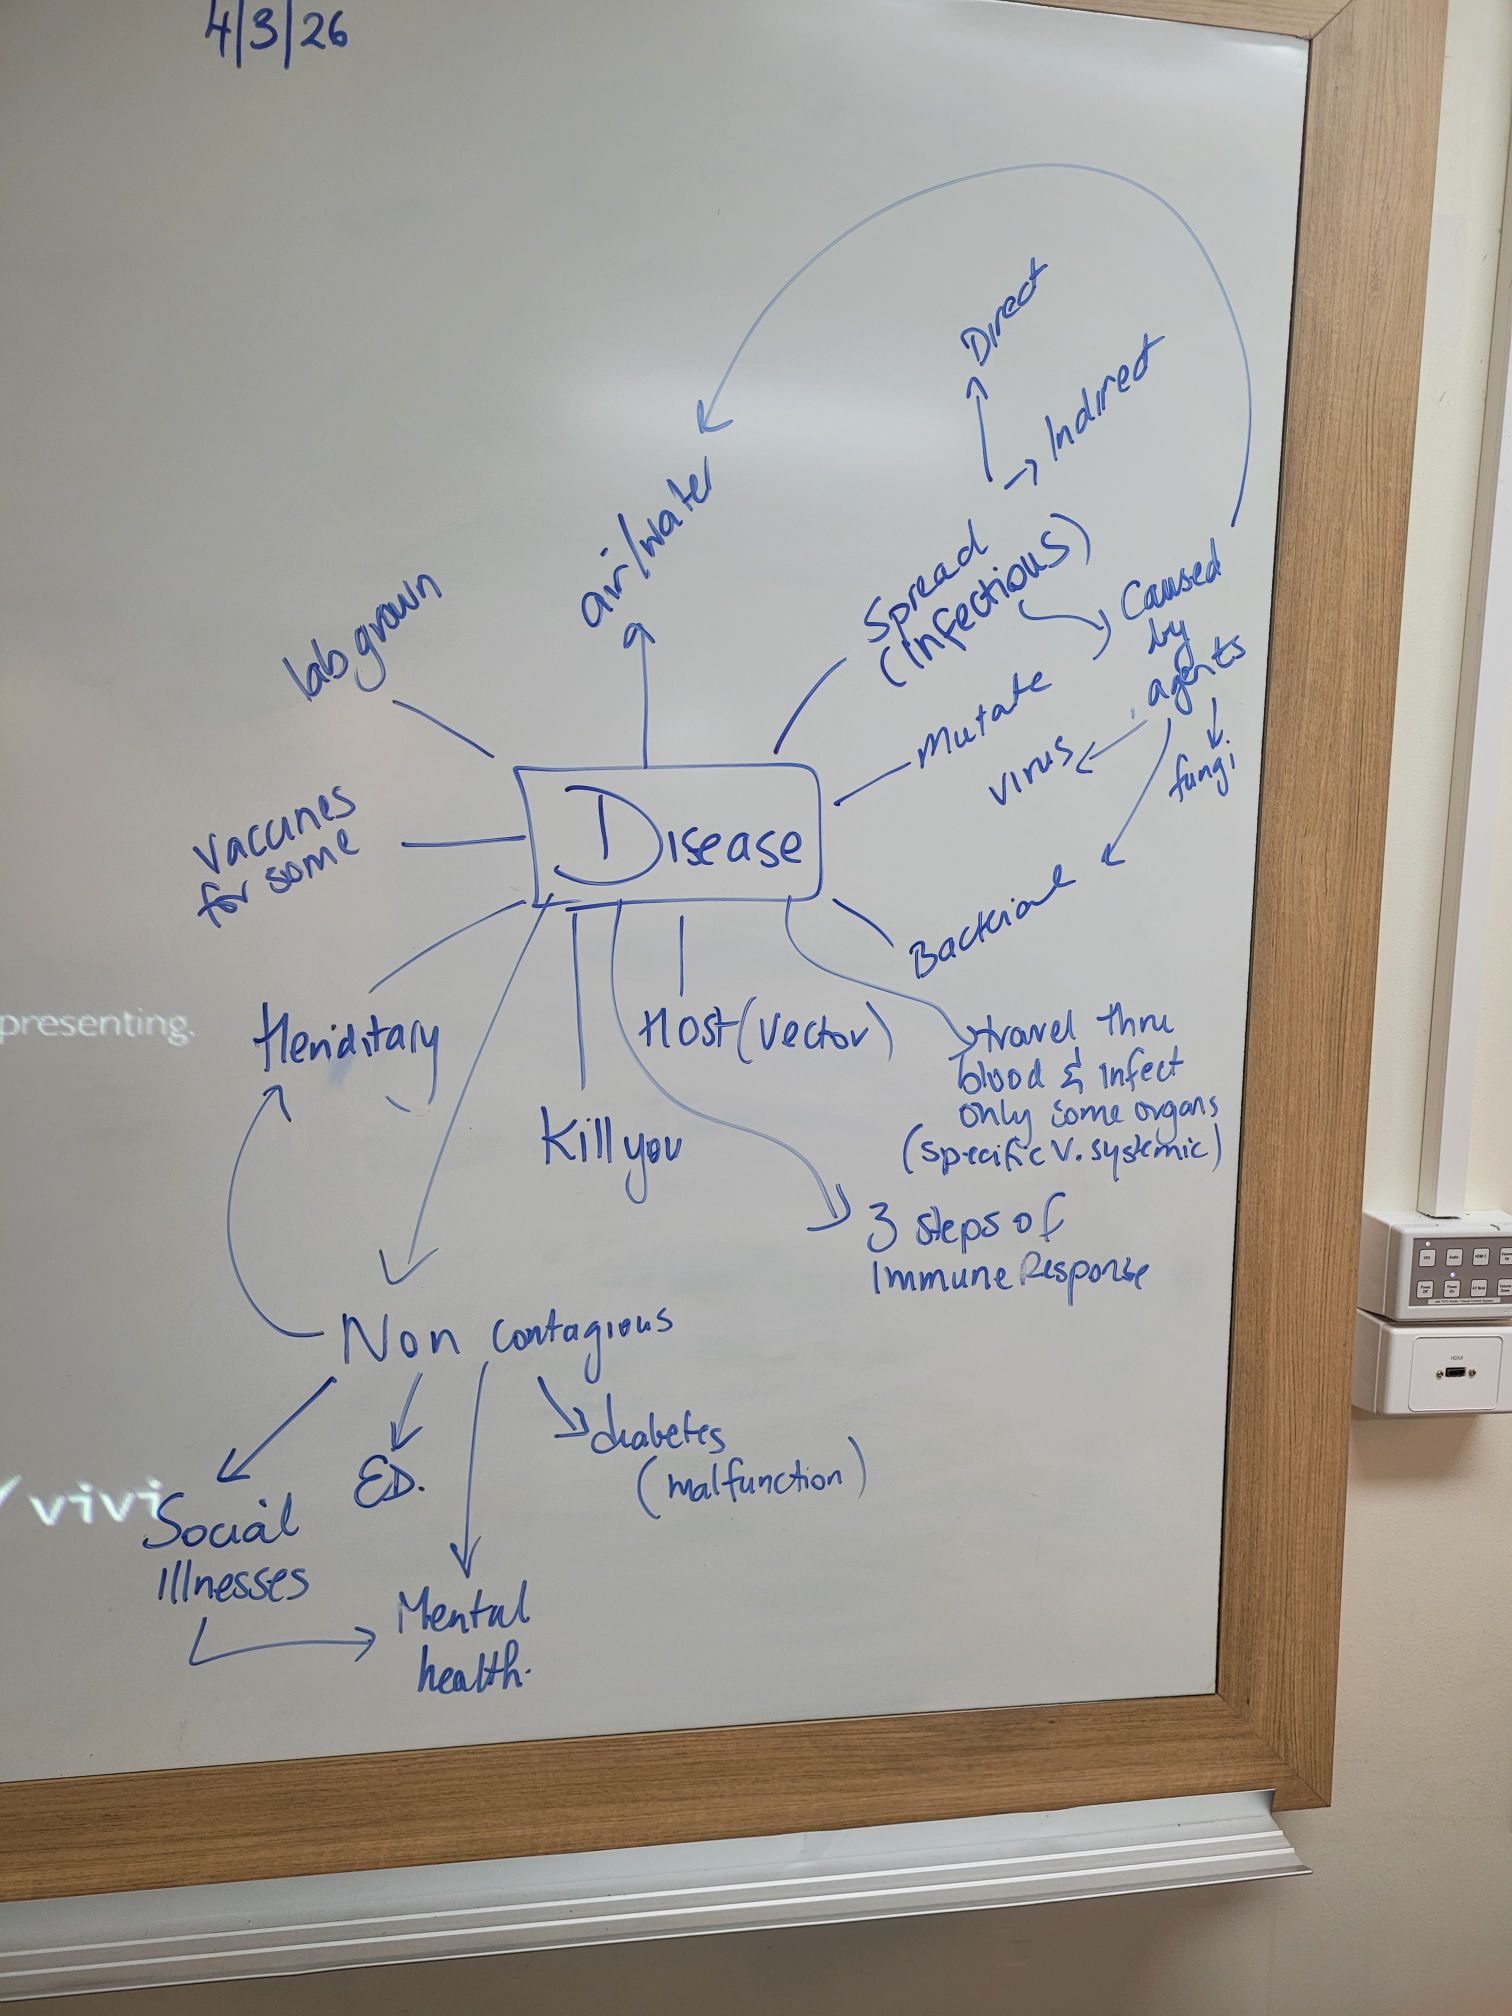 4/3/26
Direct
Indirect
air/water
Spread
(infectious)
Caused
by
agents
lab grown
Mutate
virus
fungi
Vaccines
for some
Disease
Bacterial
presenting.
Heriditary
Host (Vector)
travel thru
blood & infect
only some organs
(specific v. systemic)
Kill you
3 steps of
Immune Response
Non contagious
diabetes
(malfunction)
ED.
vivi
Social
Illnesses
Mental
health.